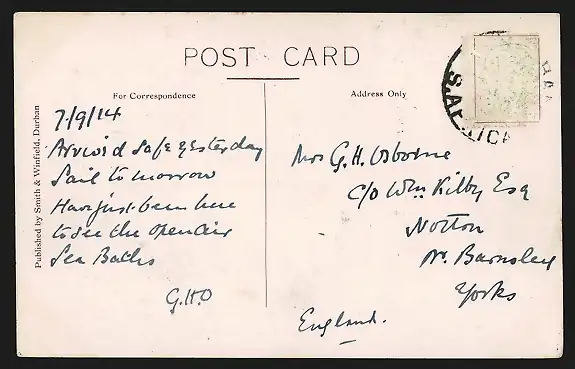 POST CARD
For Correspondence
Address Only
Published by Smith & Winfield, Durban
7/9/14
Arrived safe yesterday
Sail tomorrow
Have just been here
to see the open air
Sea Baths
G.H.O
Mrs G.H. Osborne
c/o Wm Kilby Esq
Notton
Nr. Barnsley
Yorks
England.